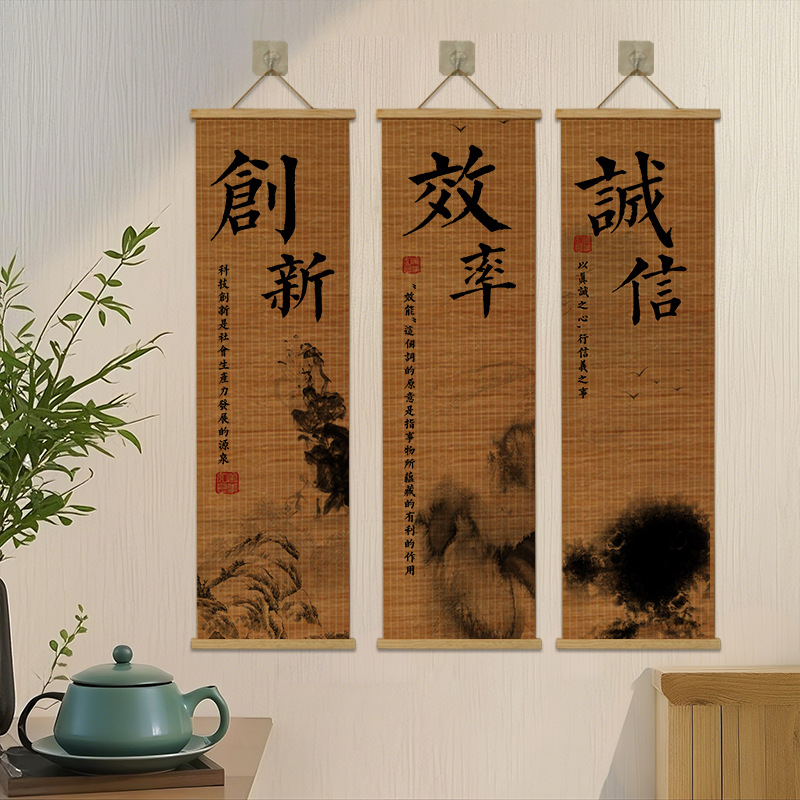 創新
科技創新是社會生產力發展的源泉
效率
"效能"這個詞的原意是指事物所蘊藏的有利的作用
誠信
以真誠之心,行信義之事